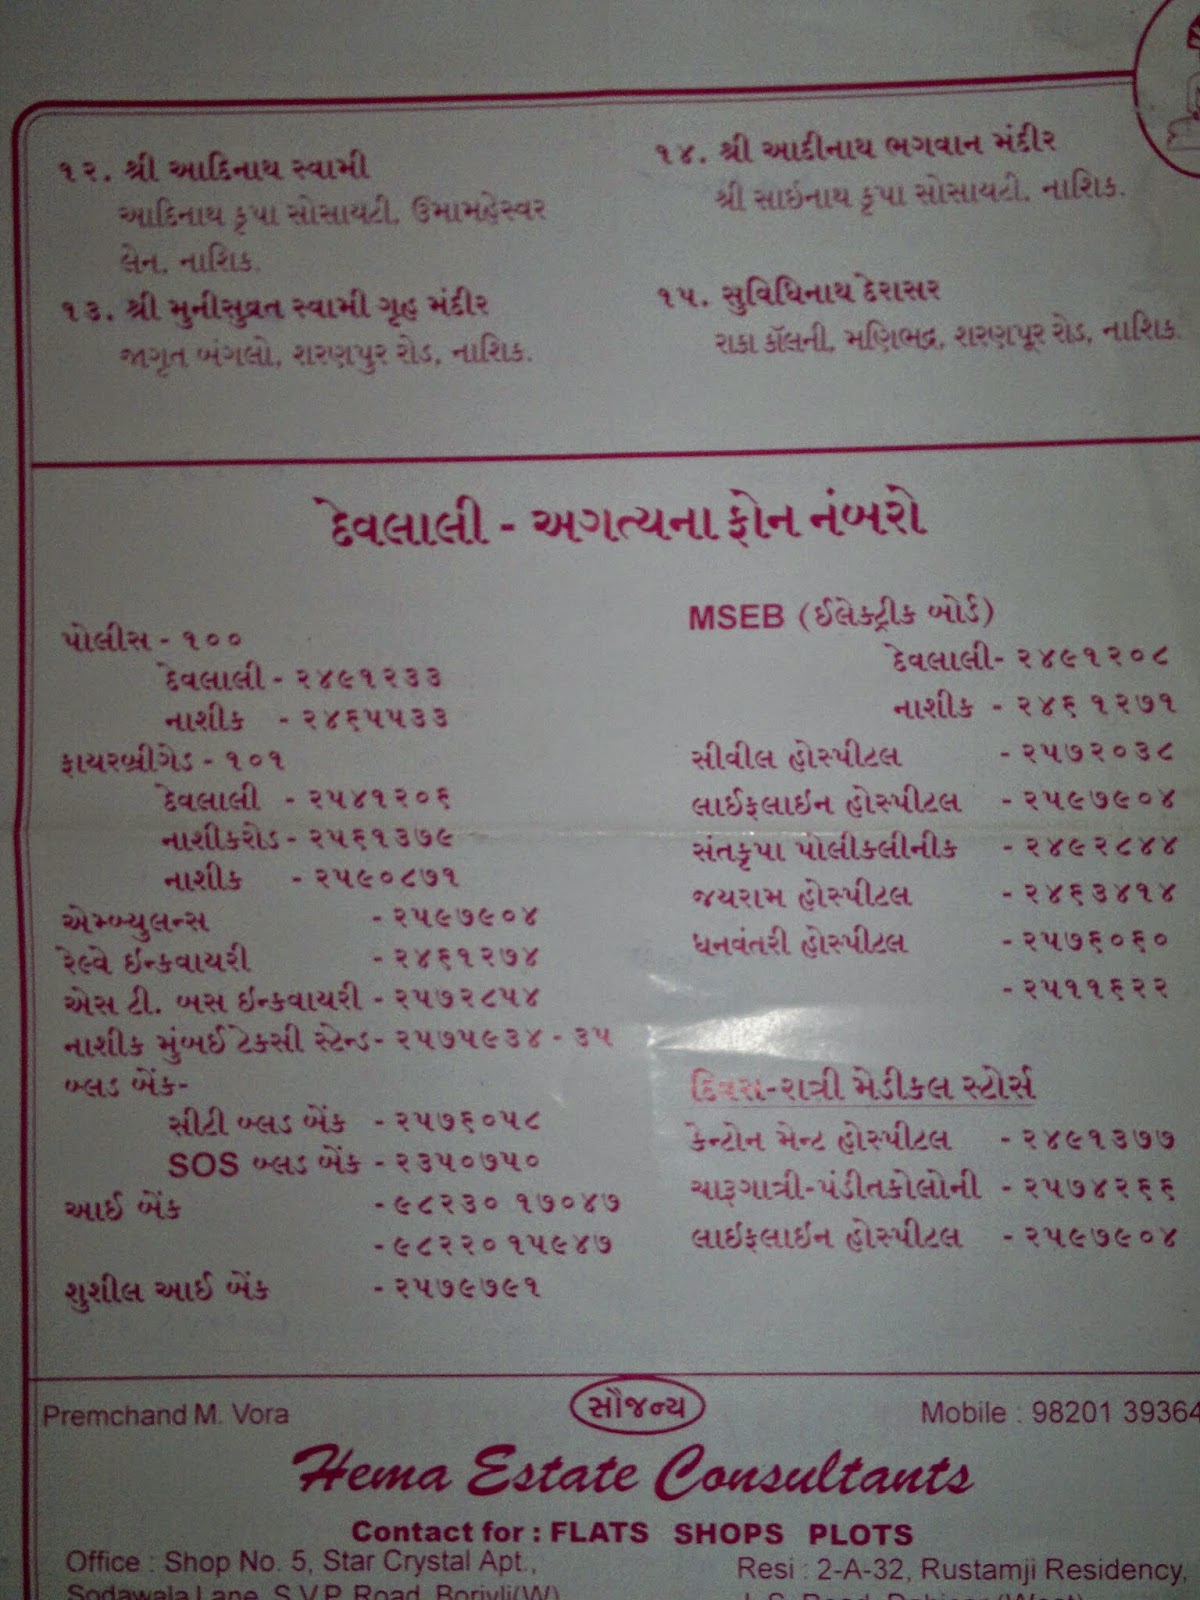 ૧૨. શ્રી આદિનાથ સ્વામી
આદિનાથ કૃપા સોસાયટી, ઉમામહેસ્વર
લેન, નાશિક.
૧૩. શ્રી મુનીસુવ્રત સ્વામી ગૃહ મંદીર
જાગૃત બંગલો, શરણપુર રોડ, નાશિક.
૧૪. શ્રી આદીનાથ ભગવાન મંદીર
શ્રી સાઇનાથ કૃપા સોસાયટી, નાશિક.
૧૫. સુવિધિનાથ દેરાસર
રાકા કૉલની, મણિભદ્ર, શરણપૂર રોડ, નાશિક.
દેવલાલી - અગત્યના ફોન નંબરો
પોલીસ - ૧૦૦
દેવલાલી - ૨૪૯૧૨૩૩
નાશીક - ૨૪૬૫૫૩૩
ફાયરબ્રીગેડ - ૧૦૧
દેવલાલી - ૨૫૪૧૨૦૬
નાશીકરોડ - ૨૫૬૧૩૭૯
નાશીક - ૨૫૯૦૮૭૧
એમ્બ્યુલન્સ - ૨૫૯૭૯૦૪
રેલ્વે ઇન્કવાયરી - ૨૪૬૧૨૭૪
એસ ટી. બસ ઇન્કવાયરી - ૨૫૭૨૮૫૪
નાશીક મુંબઈ ટેક્સી સ્ટેન્ડ- ૨૫૭૫૯૩૪ - ૩૫
બ્લડ બેંક-
સીટી બ્લડ બેંક - ૨૫૭૬૦૫૮
SOS બ્લડ બેંક - ૨૩૫૦૭૫૦
આઈ બેંક - ૯૮૨૩૦ ૧૭૦૪૭
- ૯૮૨૨૦૧૫૯૪૭
શુશીલ આઈ બેંક - ૨૫૭૯૭૯૧
MSEB (ઈલેક્ટ્રીક બોર્ડ)
દેવલાલી- ૨૪૯૧૨૦૮
નાશીક - ૨૪૬૧૨૭૧
સીવીલ હોસ્પીટલ - ૨૫૭૨૦૩૮
લાઈફલાઇન હોસ્પીટલ - ૨૫૯૭૯૦૪
સંતકૃપા પોલીકલીનીક - ૨૪૯૨૮૪૪
જયરામ હોસ્પીટલ - ૨૪૬૩૪૧૪
ધનવંતરી હોસ્પીટલ - ૨૫૭૬૦૬૦
- ૨૫૧૧૬૨૨
દિવસ-રાત્રી મેડીકલ સ્ટોર્સ
કેન્ટોન મેન્ટ હોસ્પીટલ - ૨૪૯૧૩૭૭
ચારૂગાત્રી-પંડીતકોલોની - ૨૫૭૪૨૬૬
લાઇફલાઇન હોસ્પીટલ - ૨૫૯૭૯૦૪
Premchand M. Vora
સૌજન્ય
Mobile : 98201 39364
Hema Estate Consultants
Contact for : FLATS SHOPS PLOTS
Office : Shop No. 5, Star Crystal Apt.,
Sodawala Lane, S.V.P. Road, Borivli(W)
Resi : 2-A-32, Rustamji Residency,
Road, Dahisar (West)